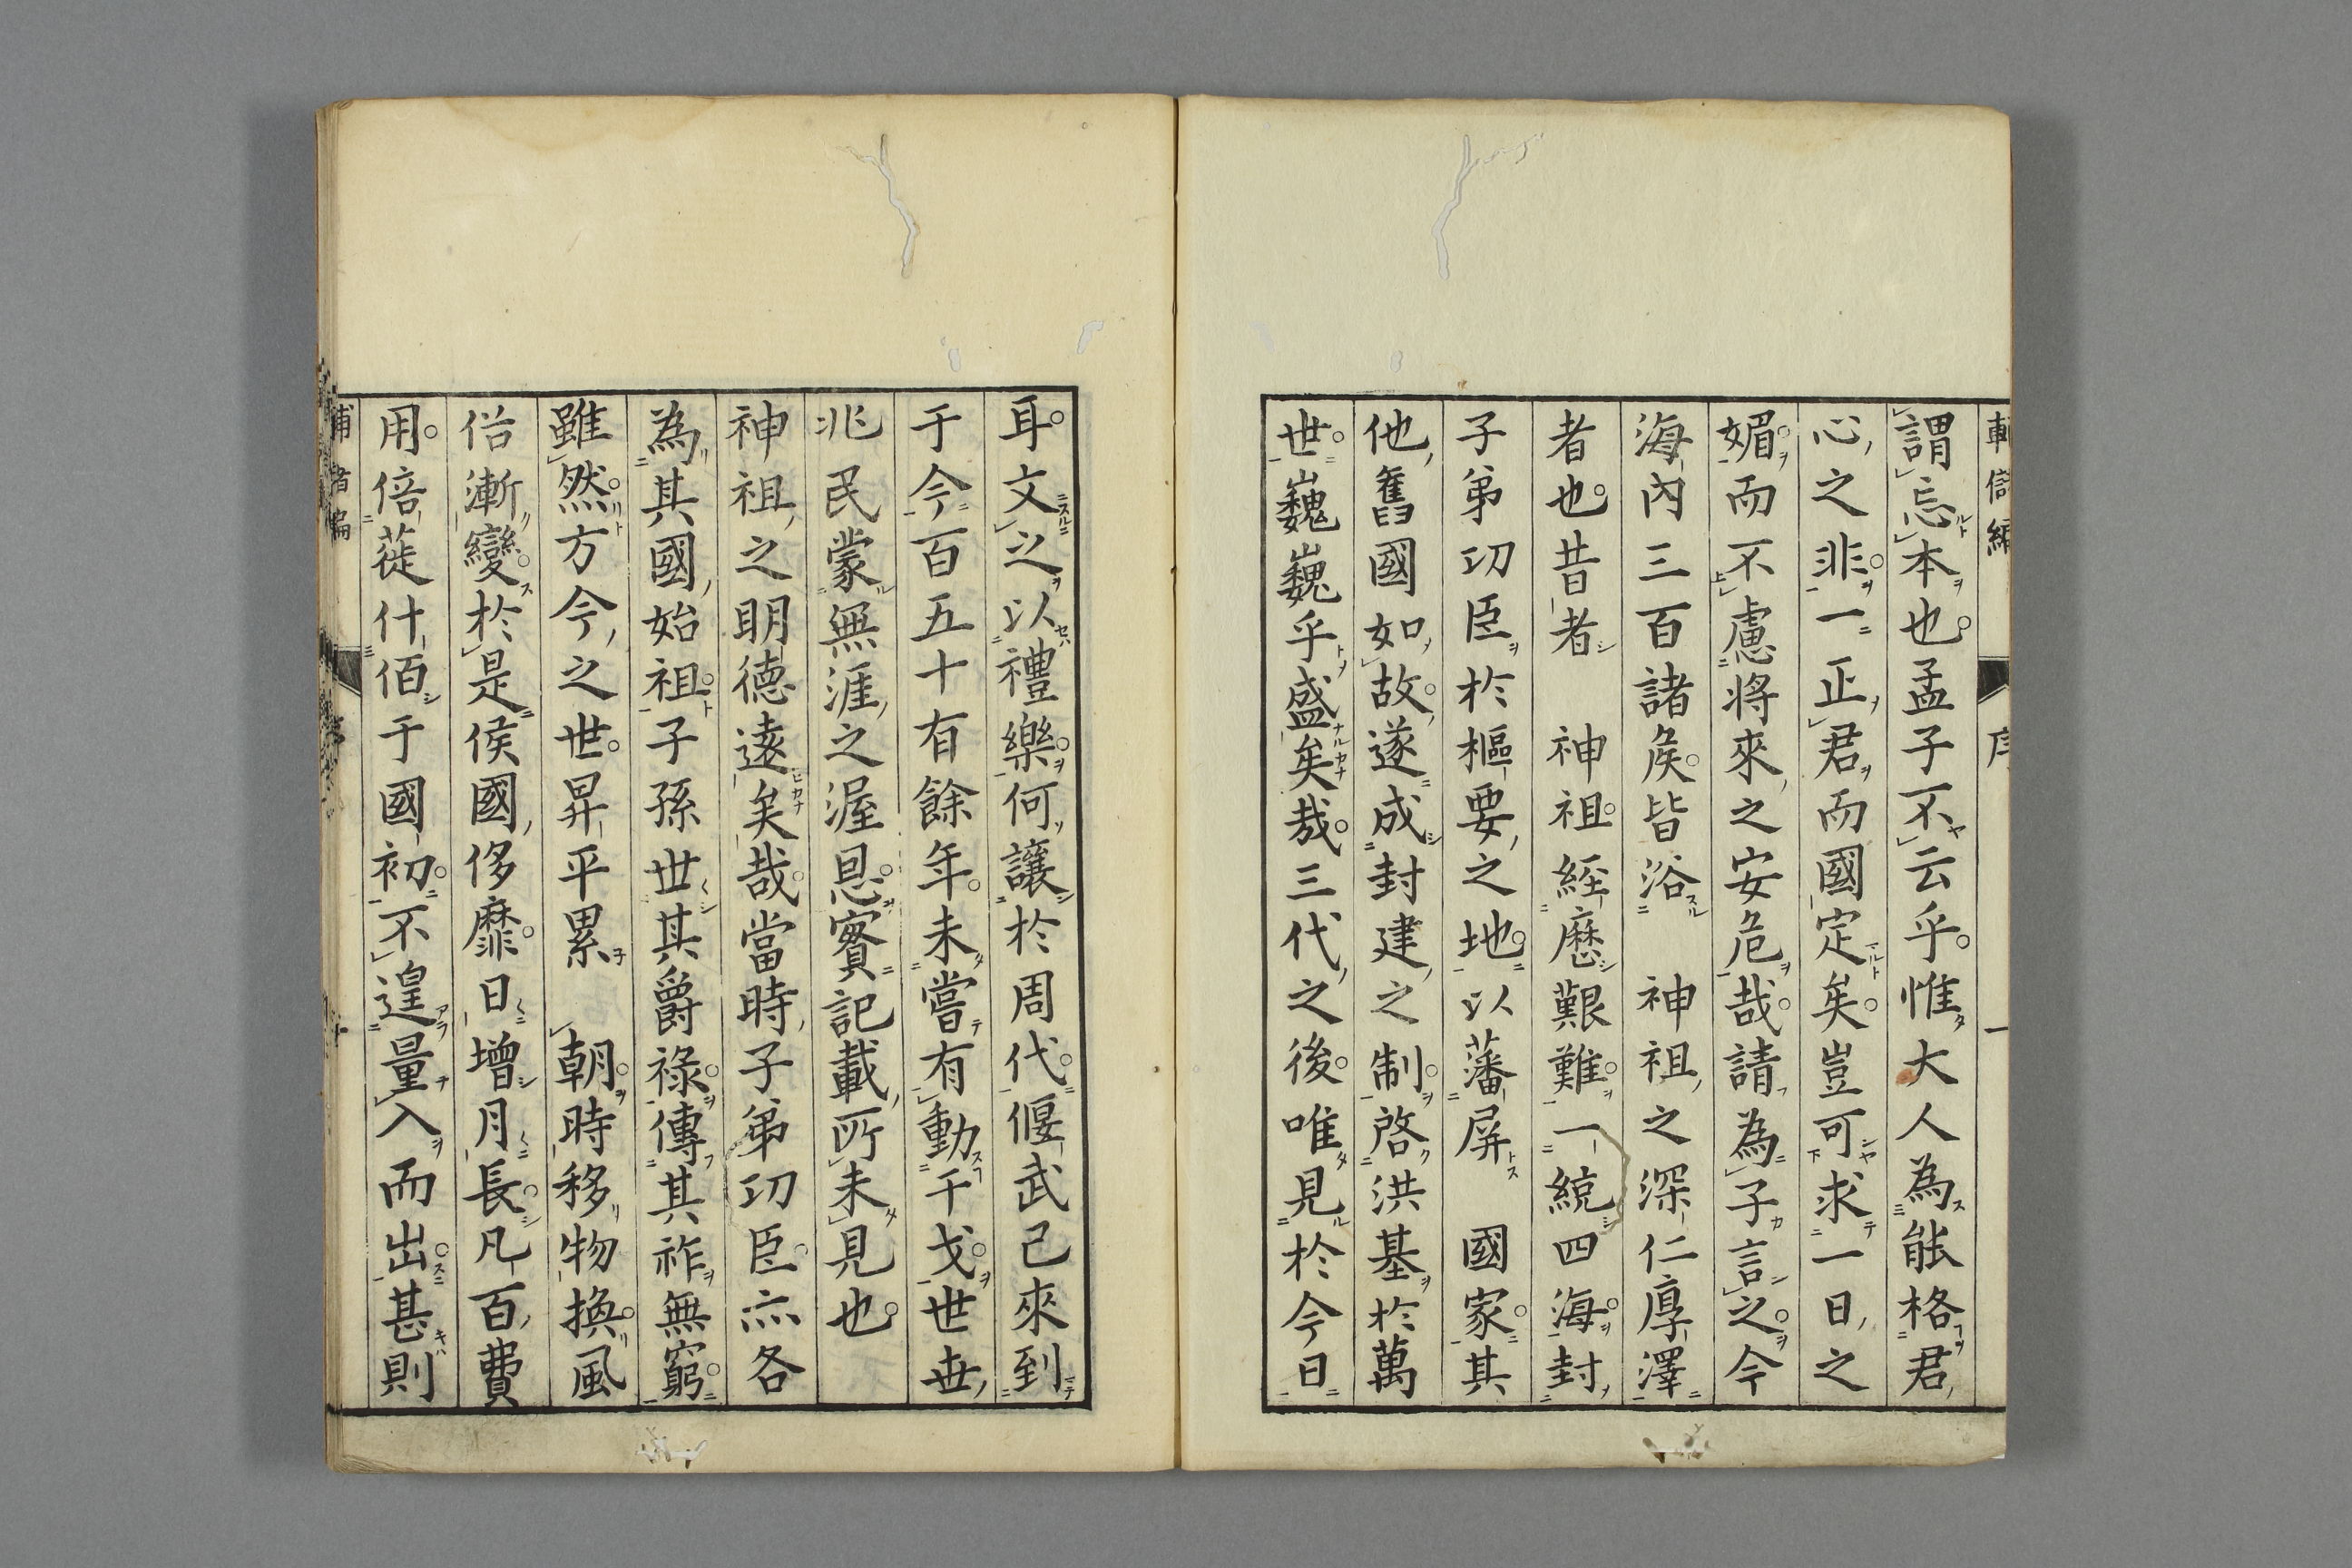 謂忘本也孟子不云乎惟大人為能格君
心之非一正君而國定矣豈可求一日之
媚而不慮將來之安危哉請為子言之今
海內三百諸侯皆浴　神祖之深仁厚澤
者也昔者　神祖經歷艱難一統四海封
子弟功臣於樞要之地以藩屏　國家其
他舊國如故遂成封建之制啓洪基於萬
世巍巍乎盛矣哉三代之後唯見於今日
耳文之以禮樂何讓於周代偃武已來到
于今百五十有餘年未嘗有動干戈世世
兆民蒙無涯之渥恩賓記載所未見也
神祖之明德遠矣哉當時子弟功臣亦各
為其國始祖子孫世其爵祿傳其祚無窮
雖然方今之世昇平累　朝時移物換風
俗漸變於是侯國侈靡日增月長凡百費
用倍蓰什佰于國初不遑量入而出甚則